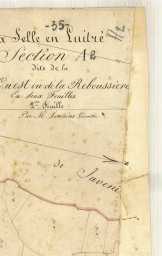 -35-
La Selle en Luitré
Section A2
dite de la
Ouest ou de la Reboussière
En deux Feuilles
2me Feuille
Par M.
de Javené